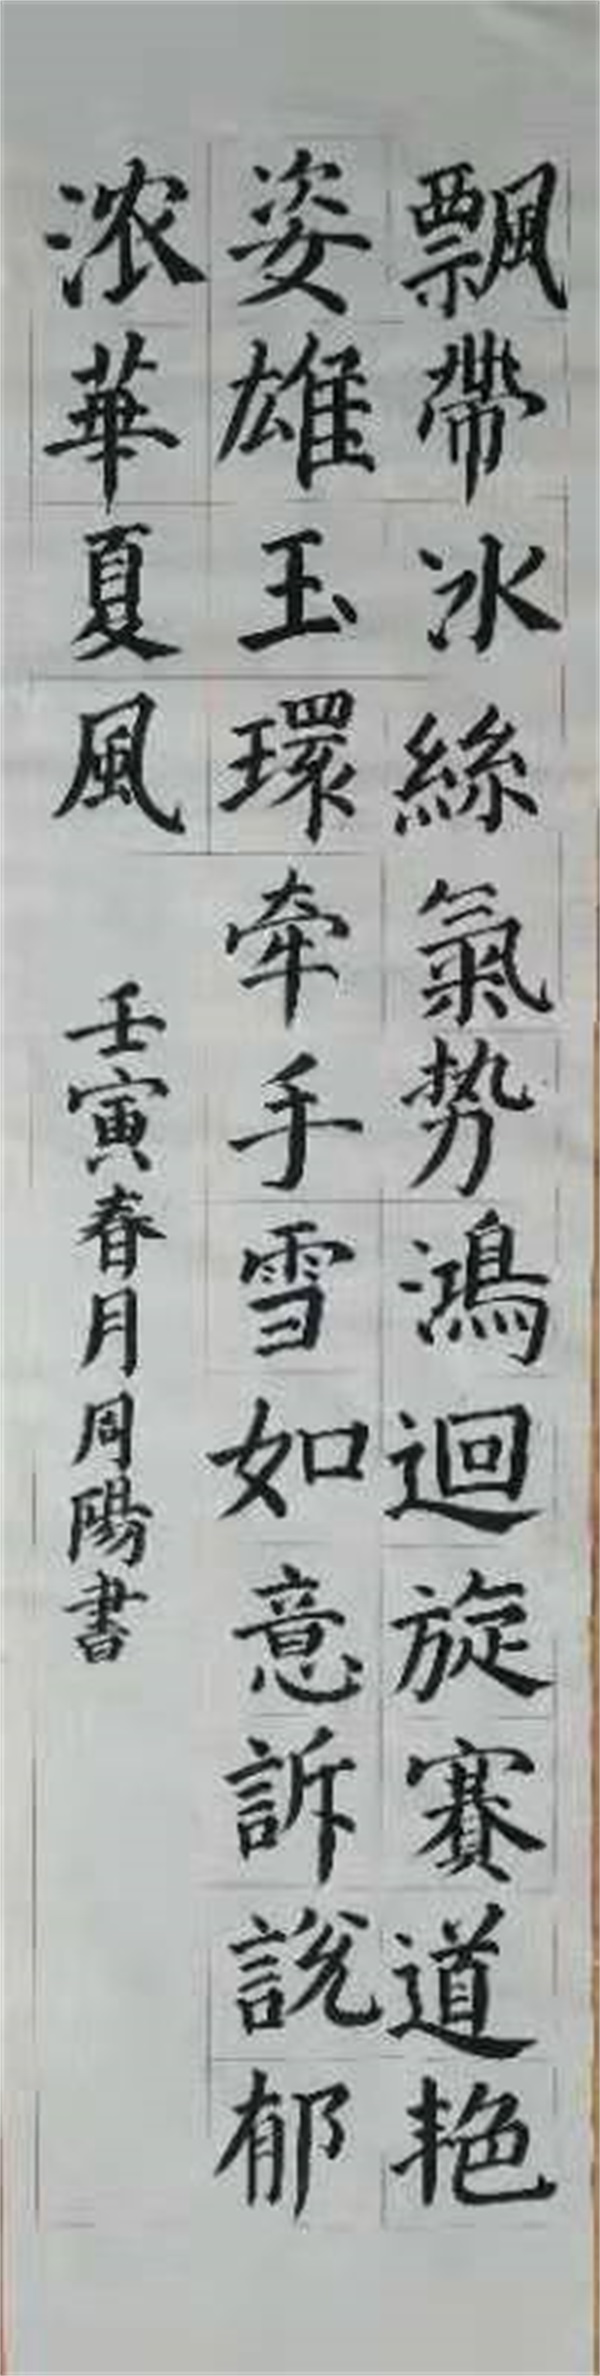 飄帶冰絲氣势鴻迴旋賽道艳
姿雄玉環牵手雪如意訴説郁
浓華夏風
壬寅春月周陽書